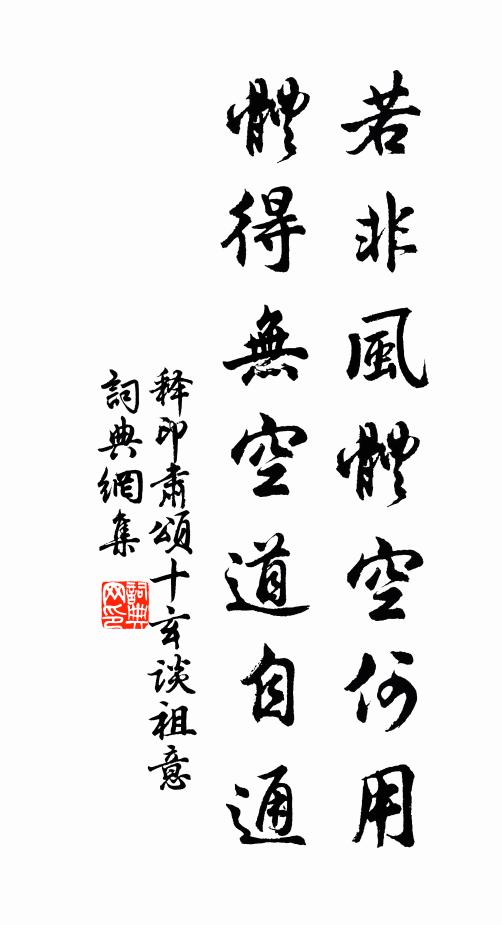 若非風體空何用
體得無空道自通
释印肃頌十玄谈祖意
詞典網集
詞典网印